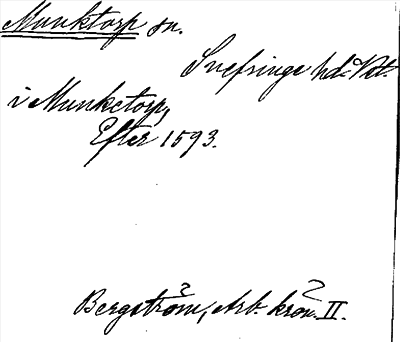 Munktorp sn.
Snefringe hd. Vstm.
i Munketorp,
Efter 1593.
Bergström, Arb. krön. II.